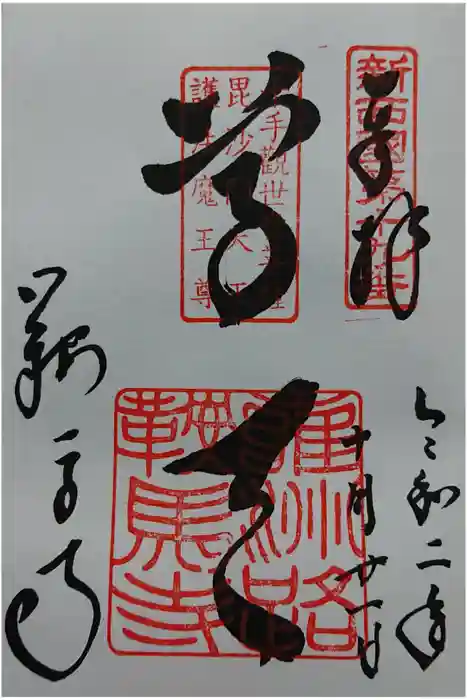 奉拝
新西國第十九番
令和二年
十月廿一日
千手觀世音菩薩
毘沙門天王
護法魔王尊
尊天
雍州路
鞍馬寺
鞍馬寺